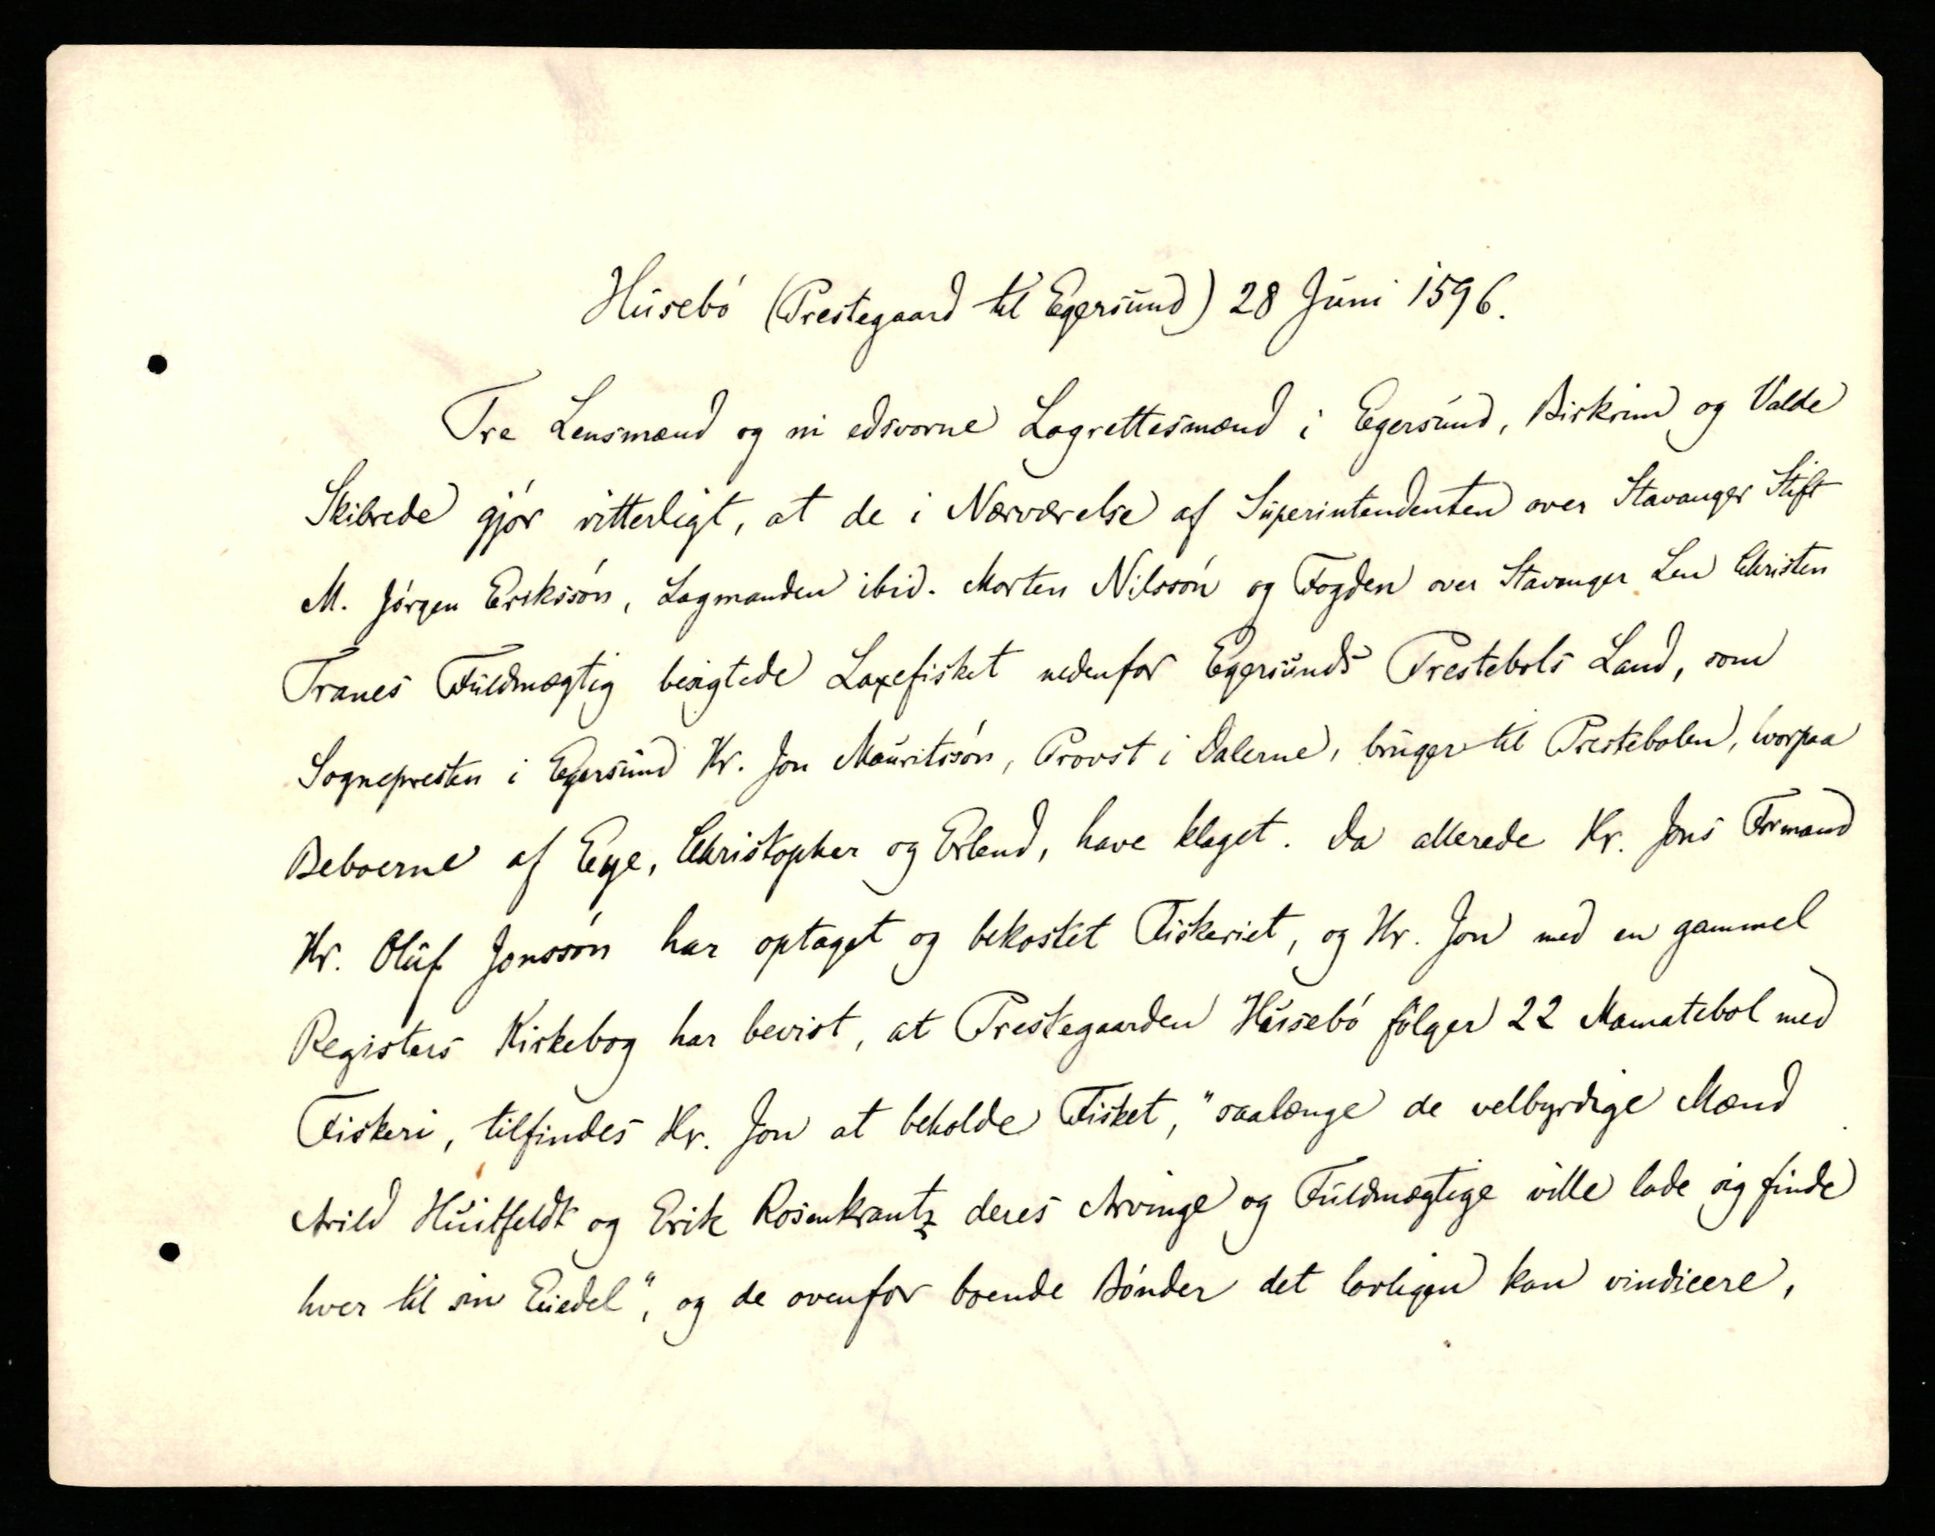 Húsebó (Prestegaard til Egersund) 28 Juni 1596.
Tre Lensmænd og ni edsvorne Lagrettesmænd i Egersund, Birkrim og Valde
Skibrede gjór vitterligt, at de i Nærværelse af Superintendenten over Stavanger Stift
M. Jórgen Erikssón, Lagmanden ibid. Morten Nilssón og Fogden over Stavanger Len Christen
Tranes Fuldmægtig besigtede Laxefisket nedenfor Egersunds Prestebols Land, som
Sognepresten i Egersund Hr. Jon Mauritssón, Provst i Dalerne, bruger til Prestebolen, hvorpaa
Beboerne af Eye, Christopher og Erlend, have klaget. Da allerede Hr. Jons Formand
Hr. Oluf Jonssón har optaget og bekostet Fiskeriet, og Hr. Jon med en gammel
Registers Kirkebog har bevist, at Prestegaarden Húsebó fólger 22 Mamatebol med
Fiskeri, tilfindes Hr. Jon at beholde Fisket, "saalænge de velbyrdige Mænd
Arild Huitfeldt og Erik Rosenkrantz deres Arvinge og Fuldmægtige ville lade sig finde
hver til sin Eiedel", og de ovenfor boende Bónder det lovligen kan vindicere,